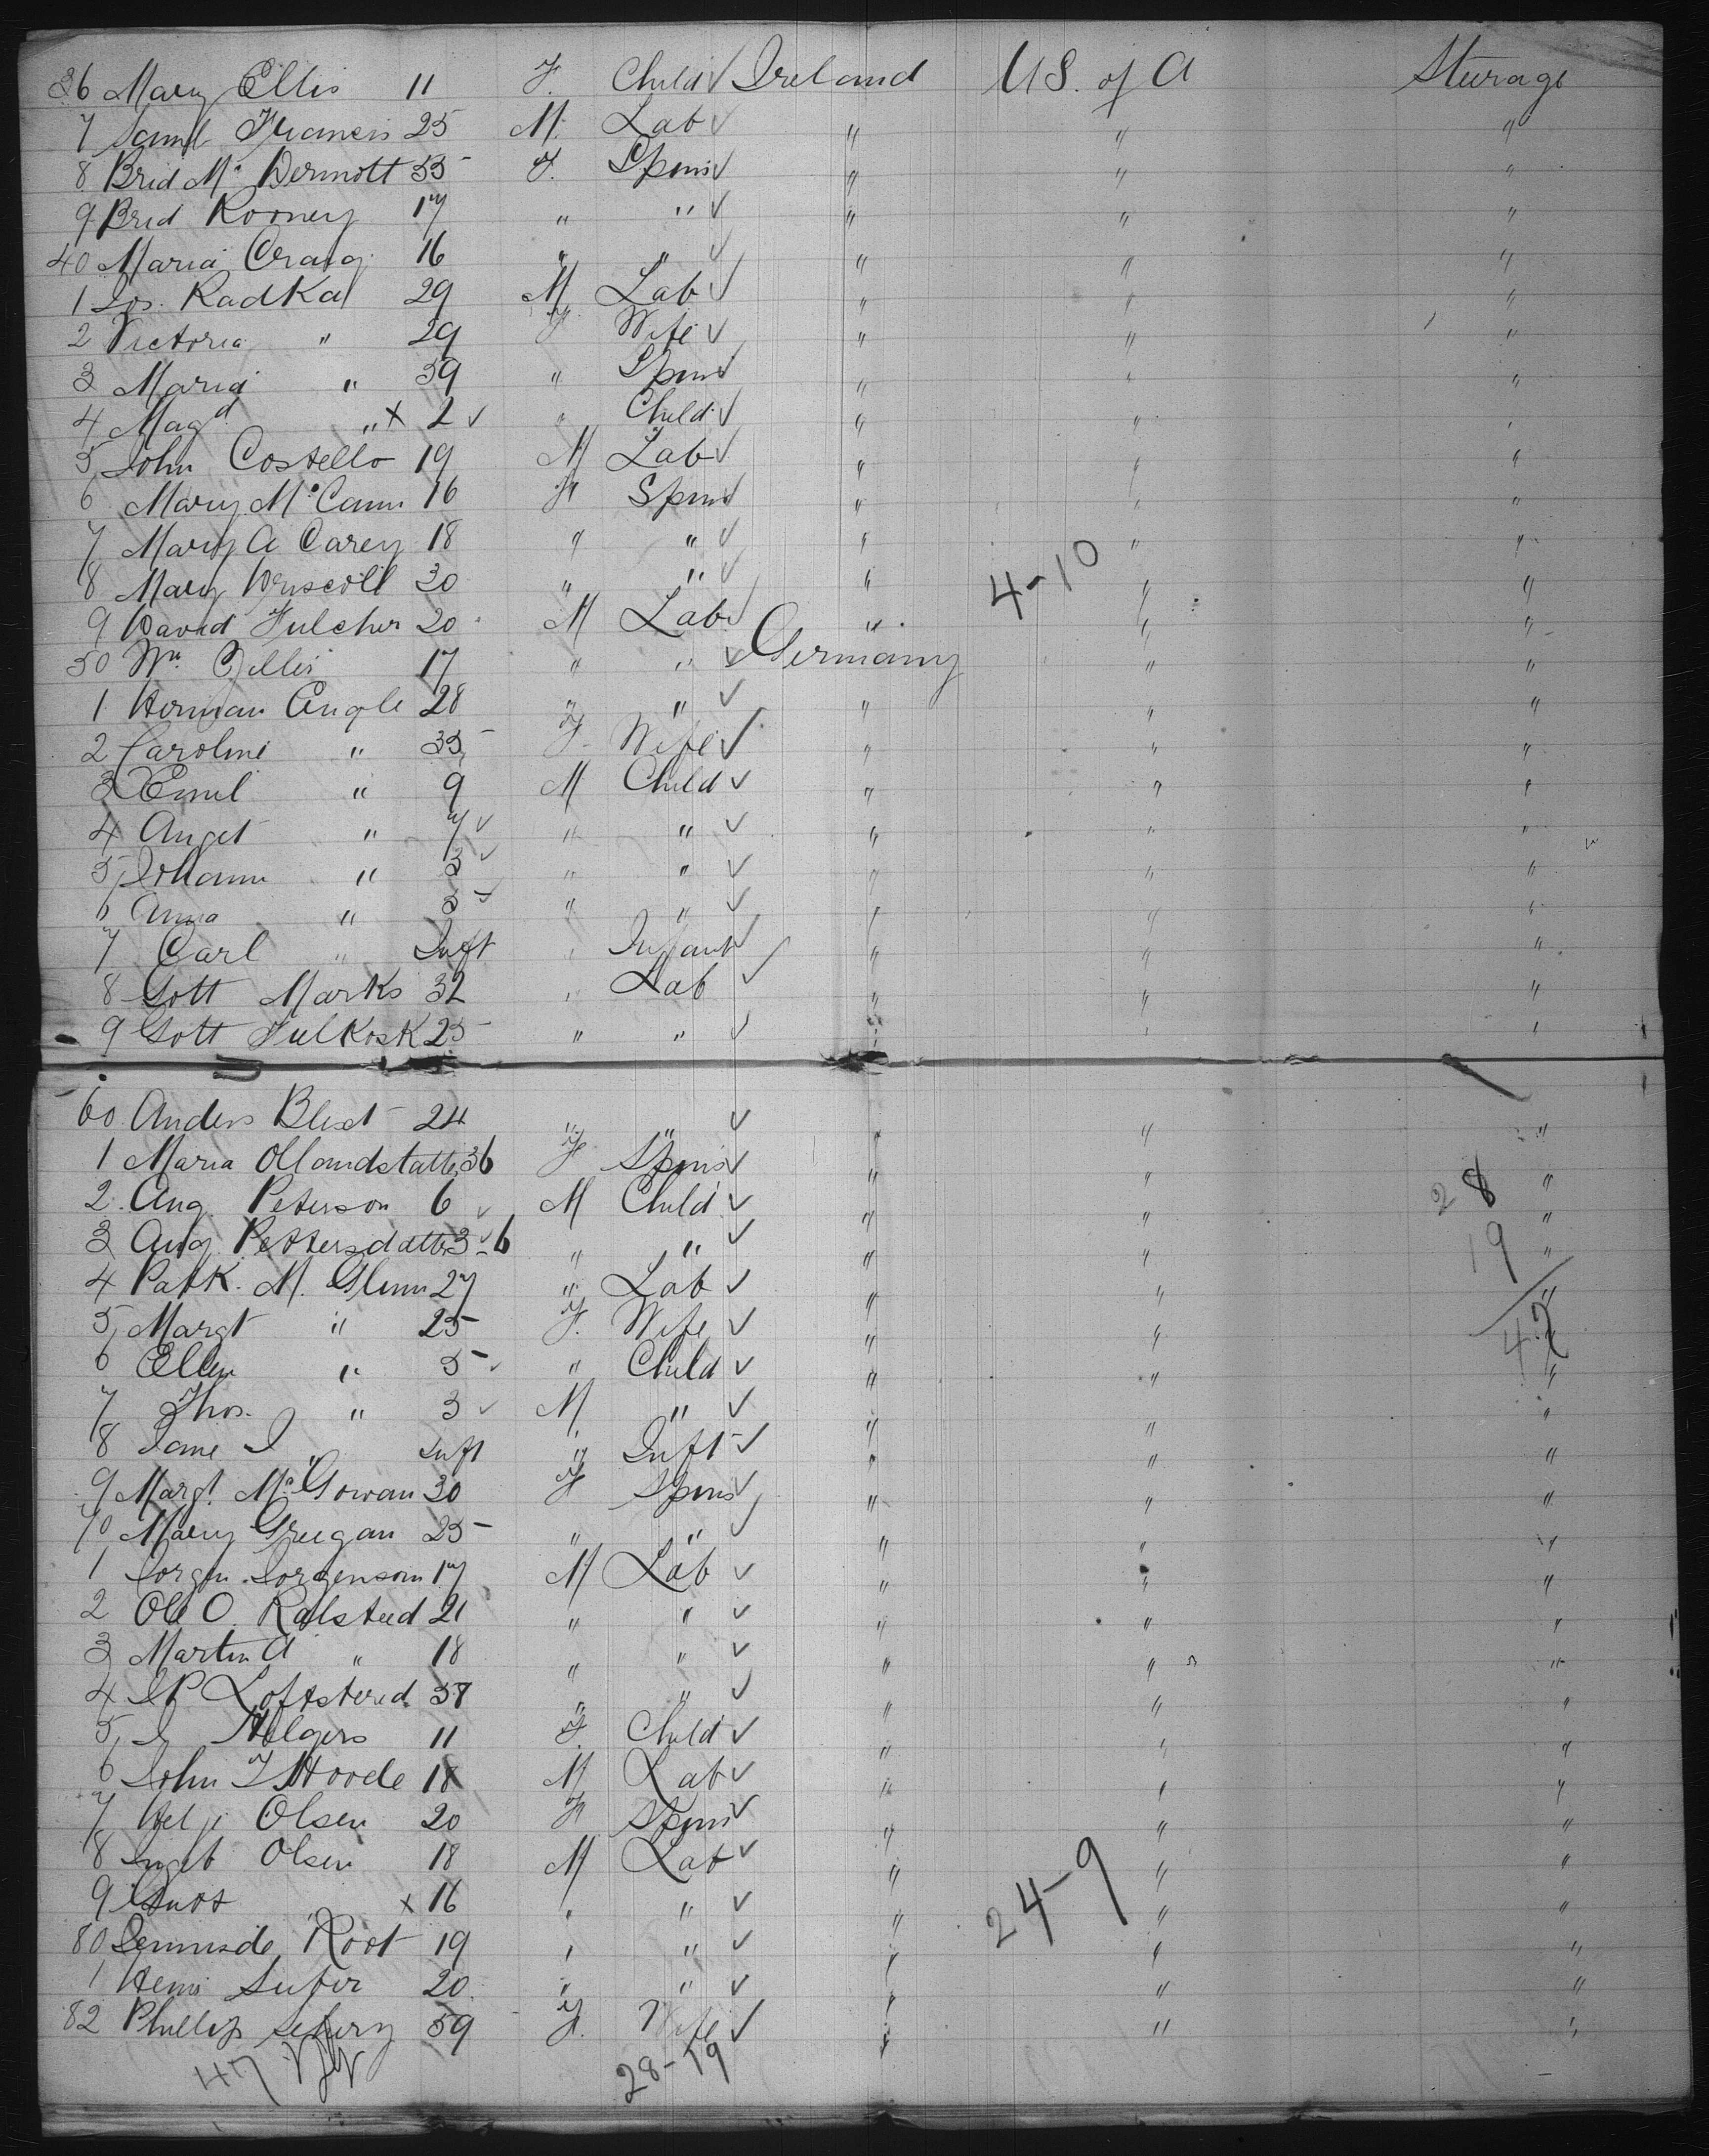 36 Mary Ellis 11 F. Child ✓ Ireland U.S. of A Steerage
7 Saml Francis 25 M. Lab ✓ " " "
8 Brid Mc Dermott 35 F. Spins ✓ " " "
9 Brid Rooney 17 " " ✓ " " "
40 Maria Craig 16 " " ✓ " " "
1 Jos. Radka 29 M Lab ✓ " " "
2 Victoria " 29 F Wife ✓ " " "
3 Maria " 39 " Spins ✓ " " "
4 Magd " x 2 ✓ " Child ✓ " " "
5 John Costello 19 M Lab ✓ " " "
6 Mary Mc Cann 16 F Spins ✓ " " "
7 Mary A Carey 18 " " ✓ " " "
8 Mary Driscoll 30 " " ✓ " 4-10 " "
9 David Fulcher 20 M Lab ✓ " " "
50 Wm. 17 " " ✓ Germany " "
1 Herman Engle 28 " " ✓ " " "
2 Caroline " 35 F Wife ✓ " " "
3 Emil " 9 M Child ✓ " " "
4 Augst " 7 ✓ " " ✓ " " "
5 Johann " 3 ✓ " " ✓ " " "
6 Anna " 3 ✓ " " ✓ " " "
7 Carl " Inft " Infant ✓ " " "
8 Gott Marks 32 " Lab ✓ " " "
9 Gott Fulkosk 25 " " ✓ " " "
60 Anders Blist 24 " " ✓ " " "
1 Maria Ollandstatter 36 F Spins ✓ " " "
2 Aug. Peterson 6 ✓ M Child ✓ " " 28 "
3 Aug Pettersdatter 3-6 " " ✓ " " 19 "
4 Patk. M. Glynn 27 " Lab ✓ " " "
5 Margt " 25 F. Wife ✓ " " 42 "
6 Ellen " 5 ✓ " Child ✓ " " "
7 Thos. " 3 ✓ M " ✓ " " "
8 Jane J " Inft " Inft ✓ " " "
9 Margt. Mc Gowan 30 F Spins ✓ " " "
70 Mary Greegan 25 " " ✓ " " "
1 Jorgen Jorgenson 17 M Lab ✓ " " "
2 Ole O. Ralsteed 21 " " ✓ " " "
3 Martin A " 18 " " ✓ " " "
4 Loftstered 38 " " ✓ " " "
5 J Helgers 11 F. Child ✓ " " "
6 John T Hoode 18 M Lab ✓ " " "
7 Helje Olsen 20 F Spins ✓ " " "
8 Ingeb Olsen 18 M Lab ✓ " " "
9 x 16 " " ✓ " 24-9 " "
80 Root 19 " " ✓ " " "
1 20 " " ✓ " " "
82 Phillip 59 F. Wife ✓ " " "
47 28-19